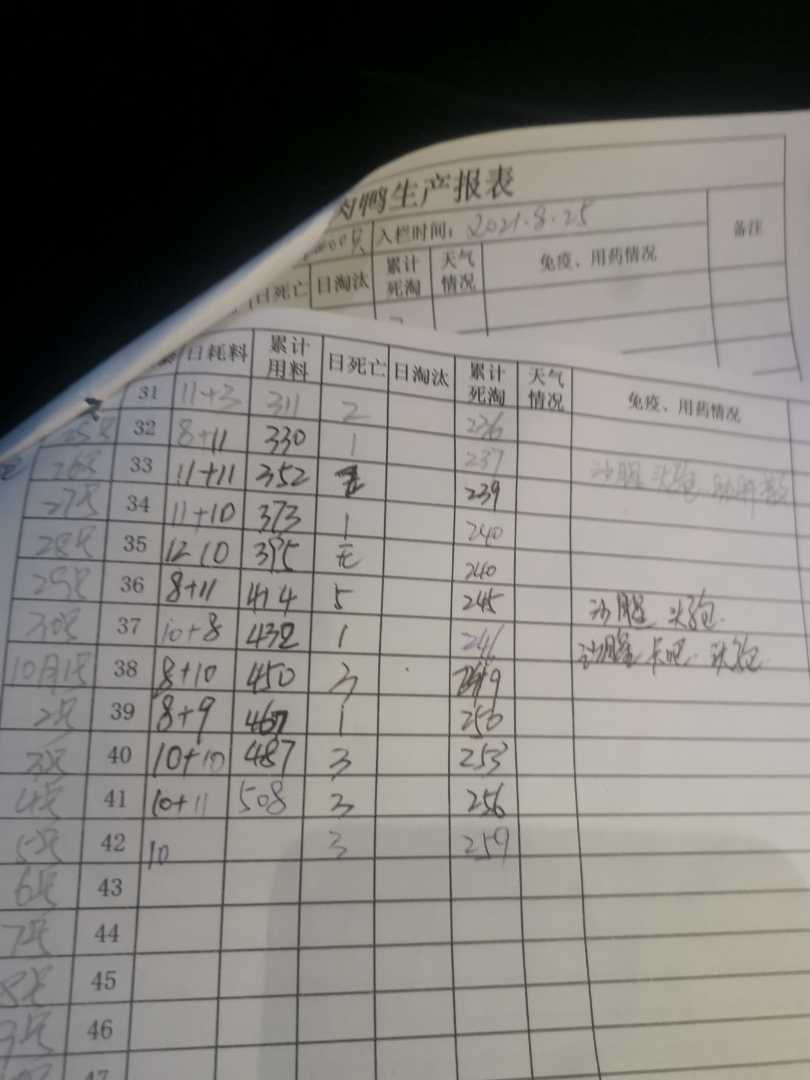 肉鸭生产报表
入栏时间: 2021.8.25 备注
日死亡 日淘汰 累计死淘 天气情况 免疫、用药情况
日耗料 累计用料 日死亡 日淘汰 累计死淘 天气情况 免疫、用药情况
31 11+3 311 2 236
25号 32 8+11 330 1 237
26号 33 11+11 352 239
27号 34 11+10 373 1 240
28号 35 12 10 395 无 240
29号 36 8+11 414 5 245 头孢
30号 37 10+8 432 1 246 头孢
10月1号 38 8+10 450 3 249
2号 39 8+9 467 1 250
3号 40 10+10 487 3 253
4号 41 10+11 508 3 256
5号 42 10 3 259
6号 43
7号 44
8号 45
9号 46
47